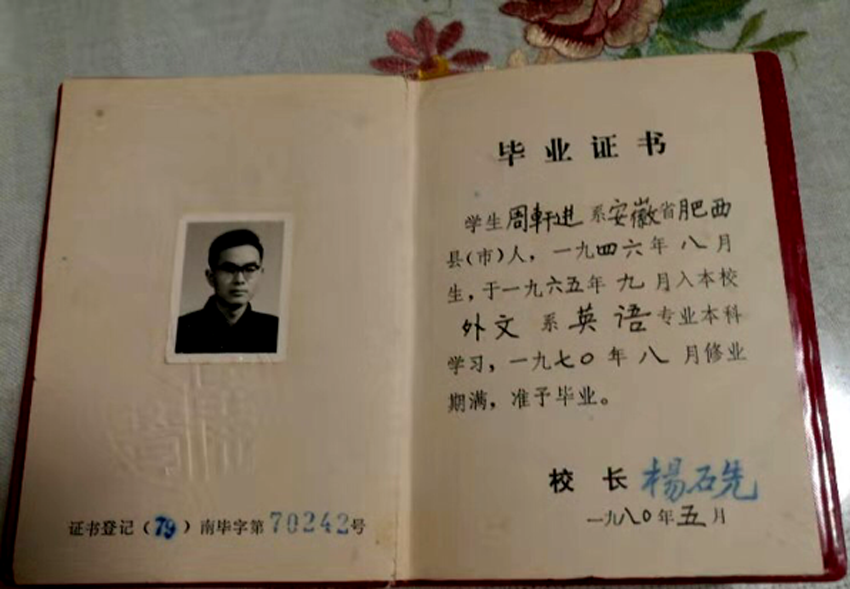 毕业证书
学生周軒进系安徽省肥西
县(市)人，一九四六年八月
生，于一九六五年九月入本校
外文系英语专业本科
学习，一九七〇年八月修业
期满，准予毕业。
校长 楊石先
一九八〇年五月
证书登记(79)南毕字第70242号